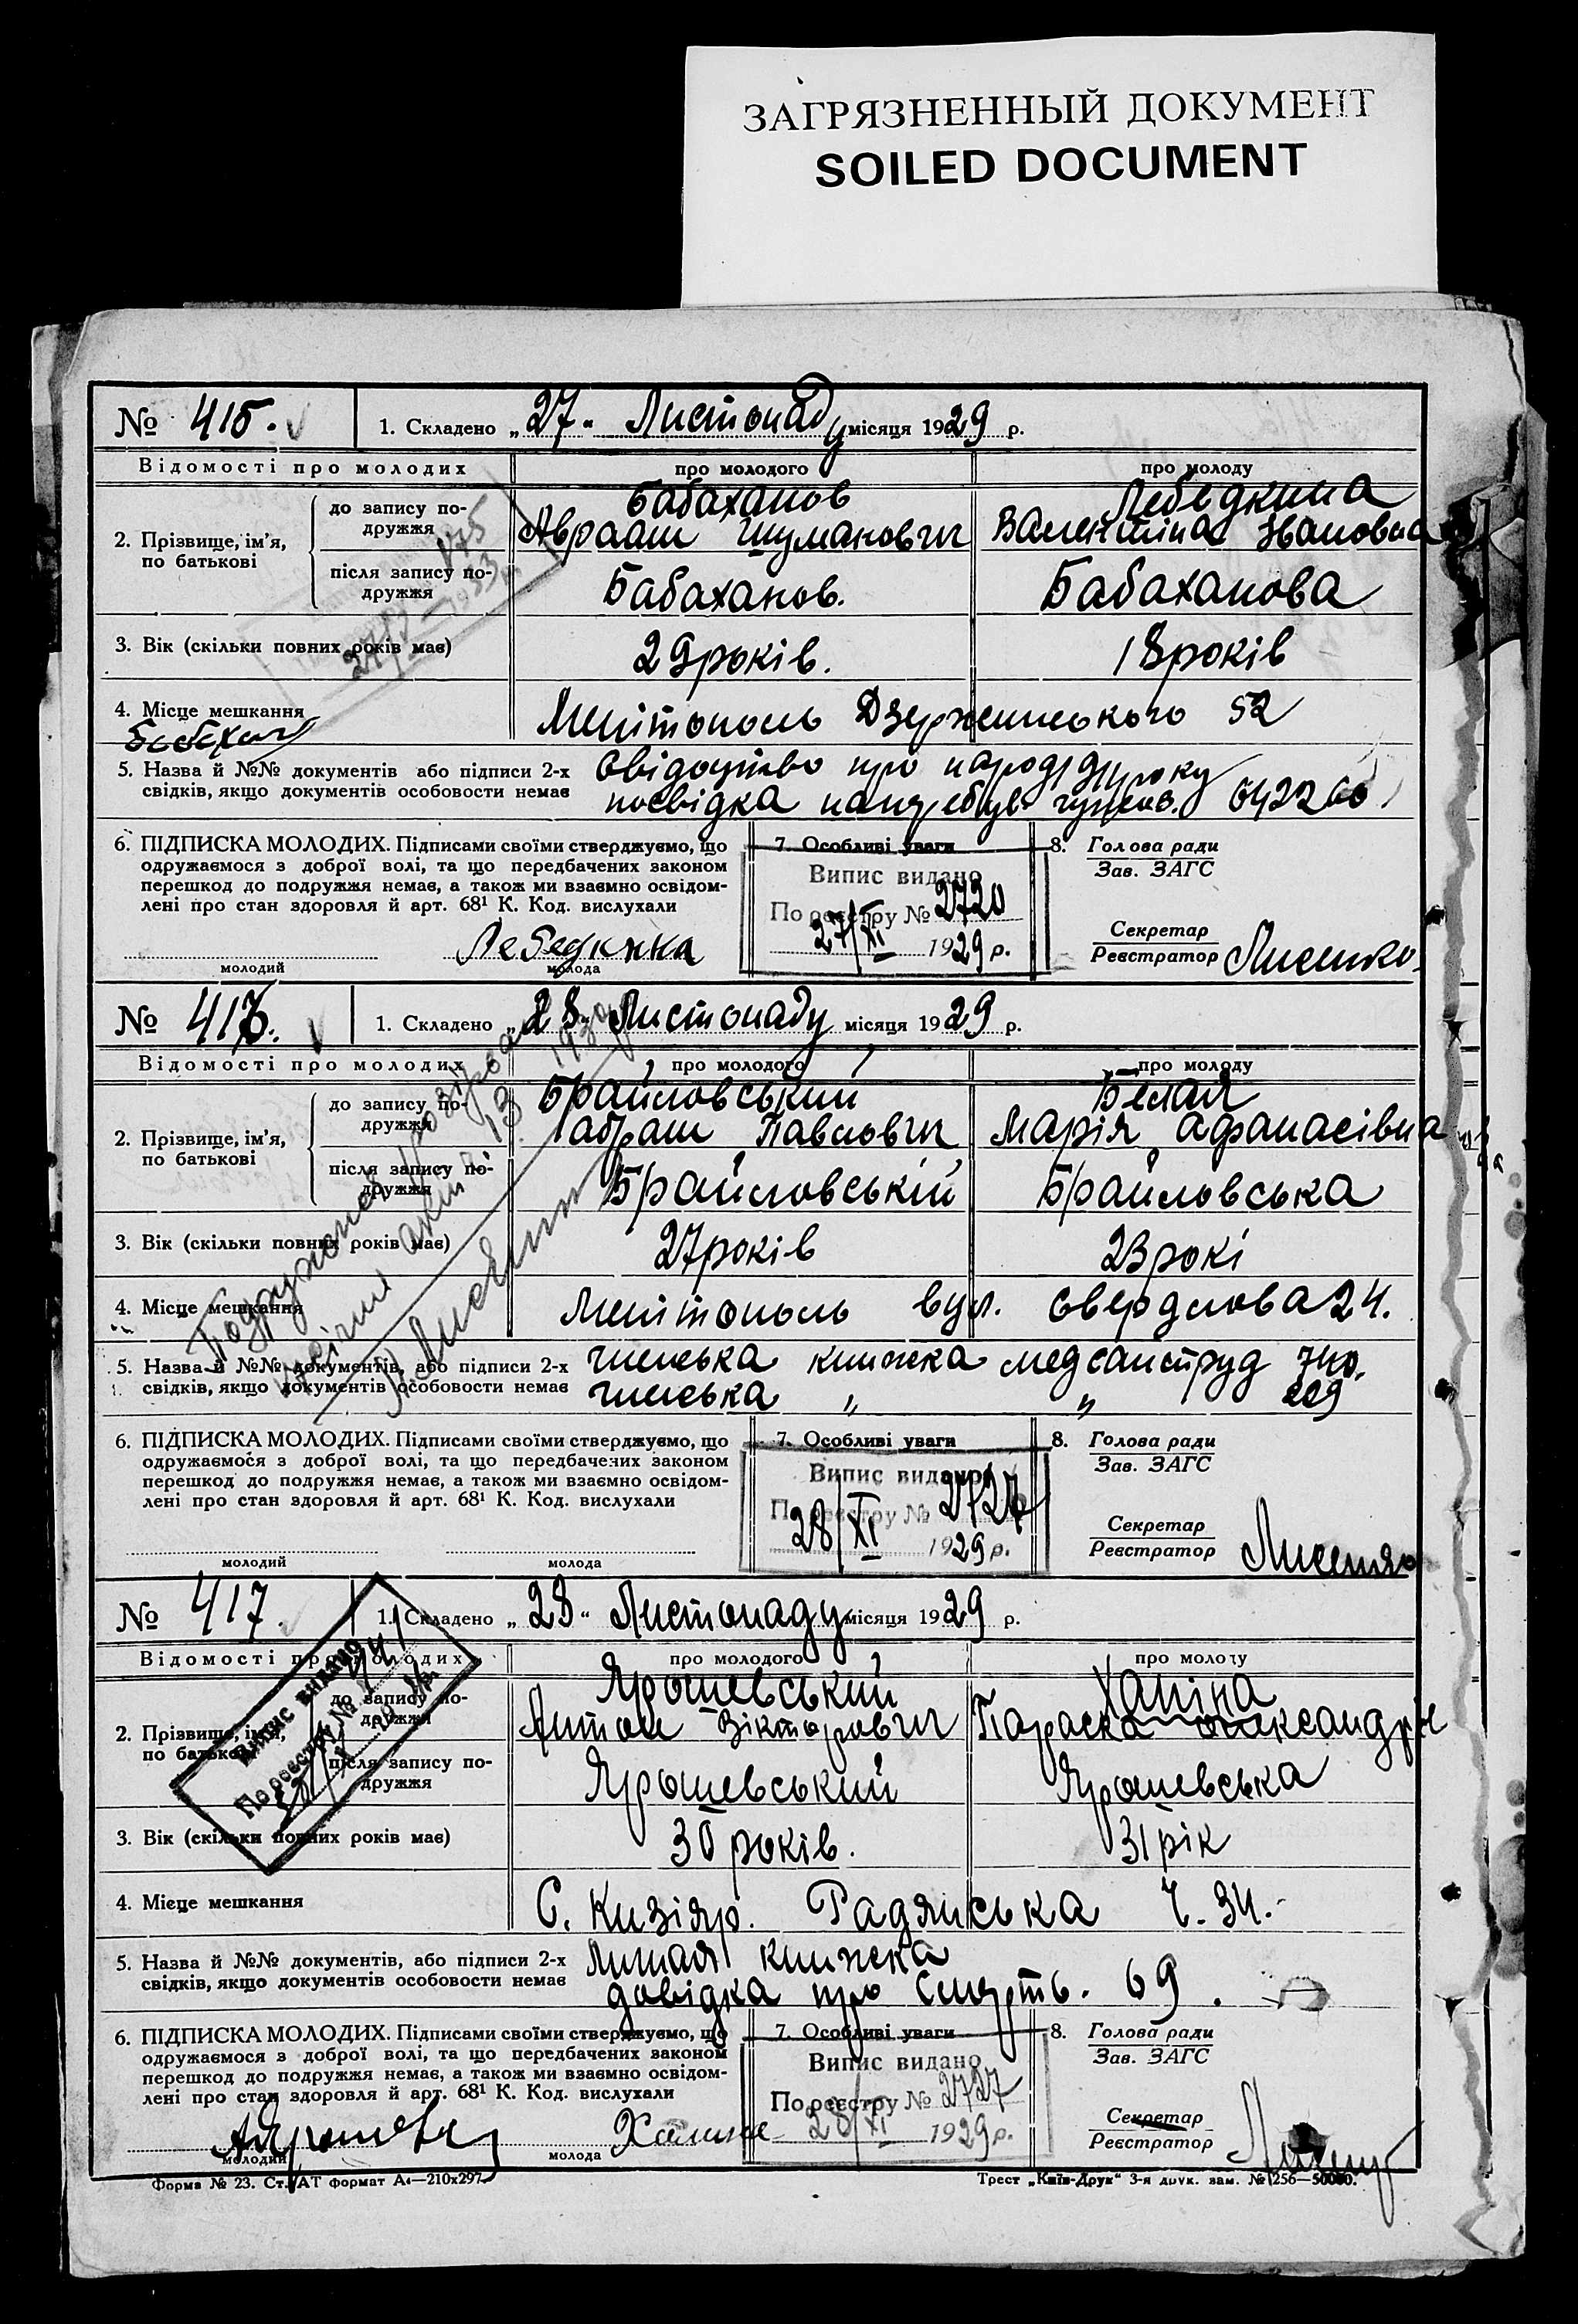 ЗАГРЯЗНЕННЫЙ ДОКУМЕНТ
SOILED DOCUMENT
№ 415. 1. Складено „27“ Листопаду місяця 1929 р.
Відомості про молодих про молодого про молоду
2. Прізвище, ім’я, по батькові
до запису подружжя
Бабаханов
Авраам Шуманович
Лебедкина
Валентіна Івановна
після запису подружжя
Бабаханов. Бабаханова
3. Вік (скільки повних років має) 29 років. 18 років
4. Місце мешкання Мелітополь Дзержинського 52
5. Назва й №№ документів або підписи 2-х Свідоцтво про народ
свідків, якщо документів особовости немає посвідка
6. ПІДПИСКА МОЛОДИХ. Підписами своїми стверджуємо, що
одружаємося з доброї волі, та що передбачених законом
перешкод до подружжя немає, а також ми взаємно освідом-
лені про стан здоровля й арт. 68¹ К. Код. вислухали
Лебедкина
молодий молода
7. Особливі уваги
Випис видано
По реєстру № 2720
27/XI 1929 р.
8. Голова ради
Зав. ЗАГС
Секретар
Реєстратор Лисенко
№ 416. 1. Складено „28“ Листопаду місяця 1929 р.
Відомості про молодих про молодого про молоду
2. Прізвище, ім’я, по батькові
до запису подружжя
Брайловський
Абрам Павлович
Белая
Марія Афанасівна
після запису подружжя
Брайловській Брайловська
3. Вік (скільки повних років має) 27 років 23 рокі
4. Місце мешкання Мелітополь вул. Свердлова 24.
5. Назва й №№ документів, або підписи 2-х членська книжка медсанструд 740.
свідків, якщо документів особовости немає членська „ „
6. ПІДПИСКА МОЛОДИХ. Підписами своїми стверджуємо, що
одружаємося з доброї волі, та що передбачених законом
перешкод до подружжя немає, а також ми взаємно освідом-
лені про стан здоровля й арт. 68¹ К. Код. вислухали
молодий молода
7. Особливі уваги
Випис видано
По реєстру №
28/XI 1929 р.
8. Голова ради
Зав. ЗАГС
Секретар
Реєстратор Лисенко
№ 417. 1. Складено „28“ Листопаду місяця 1929 р.
Відомості про молодих про молодого про молоду
Випис видано
По реєстру №
2. Прізвище, ім’я, по батькові
до запису подружжя
Ярошевський
Антон Вікторович
Ханіна
Параска Олександрів
після запису подружжя
Ярошевський Ярошевська
3. Вік (скільки повних років має) 30 років. 31 рік
4. Місце мешкання С. Кизіяр. Радянська ч. 34.
5. Назва й №№ документів, або підписи 2-х книжка
свідків, якщо документів особовости немає довідка про смерть. 69.
6. ПІДПИСКА МОЛОДИХ. Підписами своїми стверджуємо, що
одружаємося з доброї волі, та що передбачених законом
перешкод до подружжя немає, а також ми взаємно освідом-
лені про стан здоровля й арт. 68¹ К. Код. вислухали
молодий молода
7. Особливі уваги
Випис видано
По реєстру № 2727
28/XI 1929 р.
8. Голова ради
Зав. ЗАГС
Секретар
Реєстратор
Форма № 23. Ст. АТ формат А₄—210х297 Трест „Київ-Друк“ 3-я друк. зам. № 256—50000.